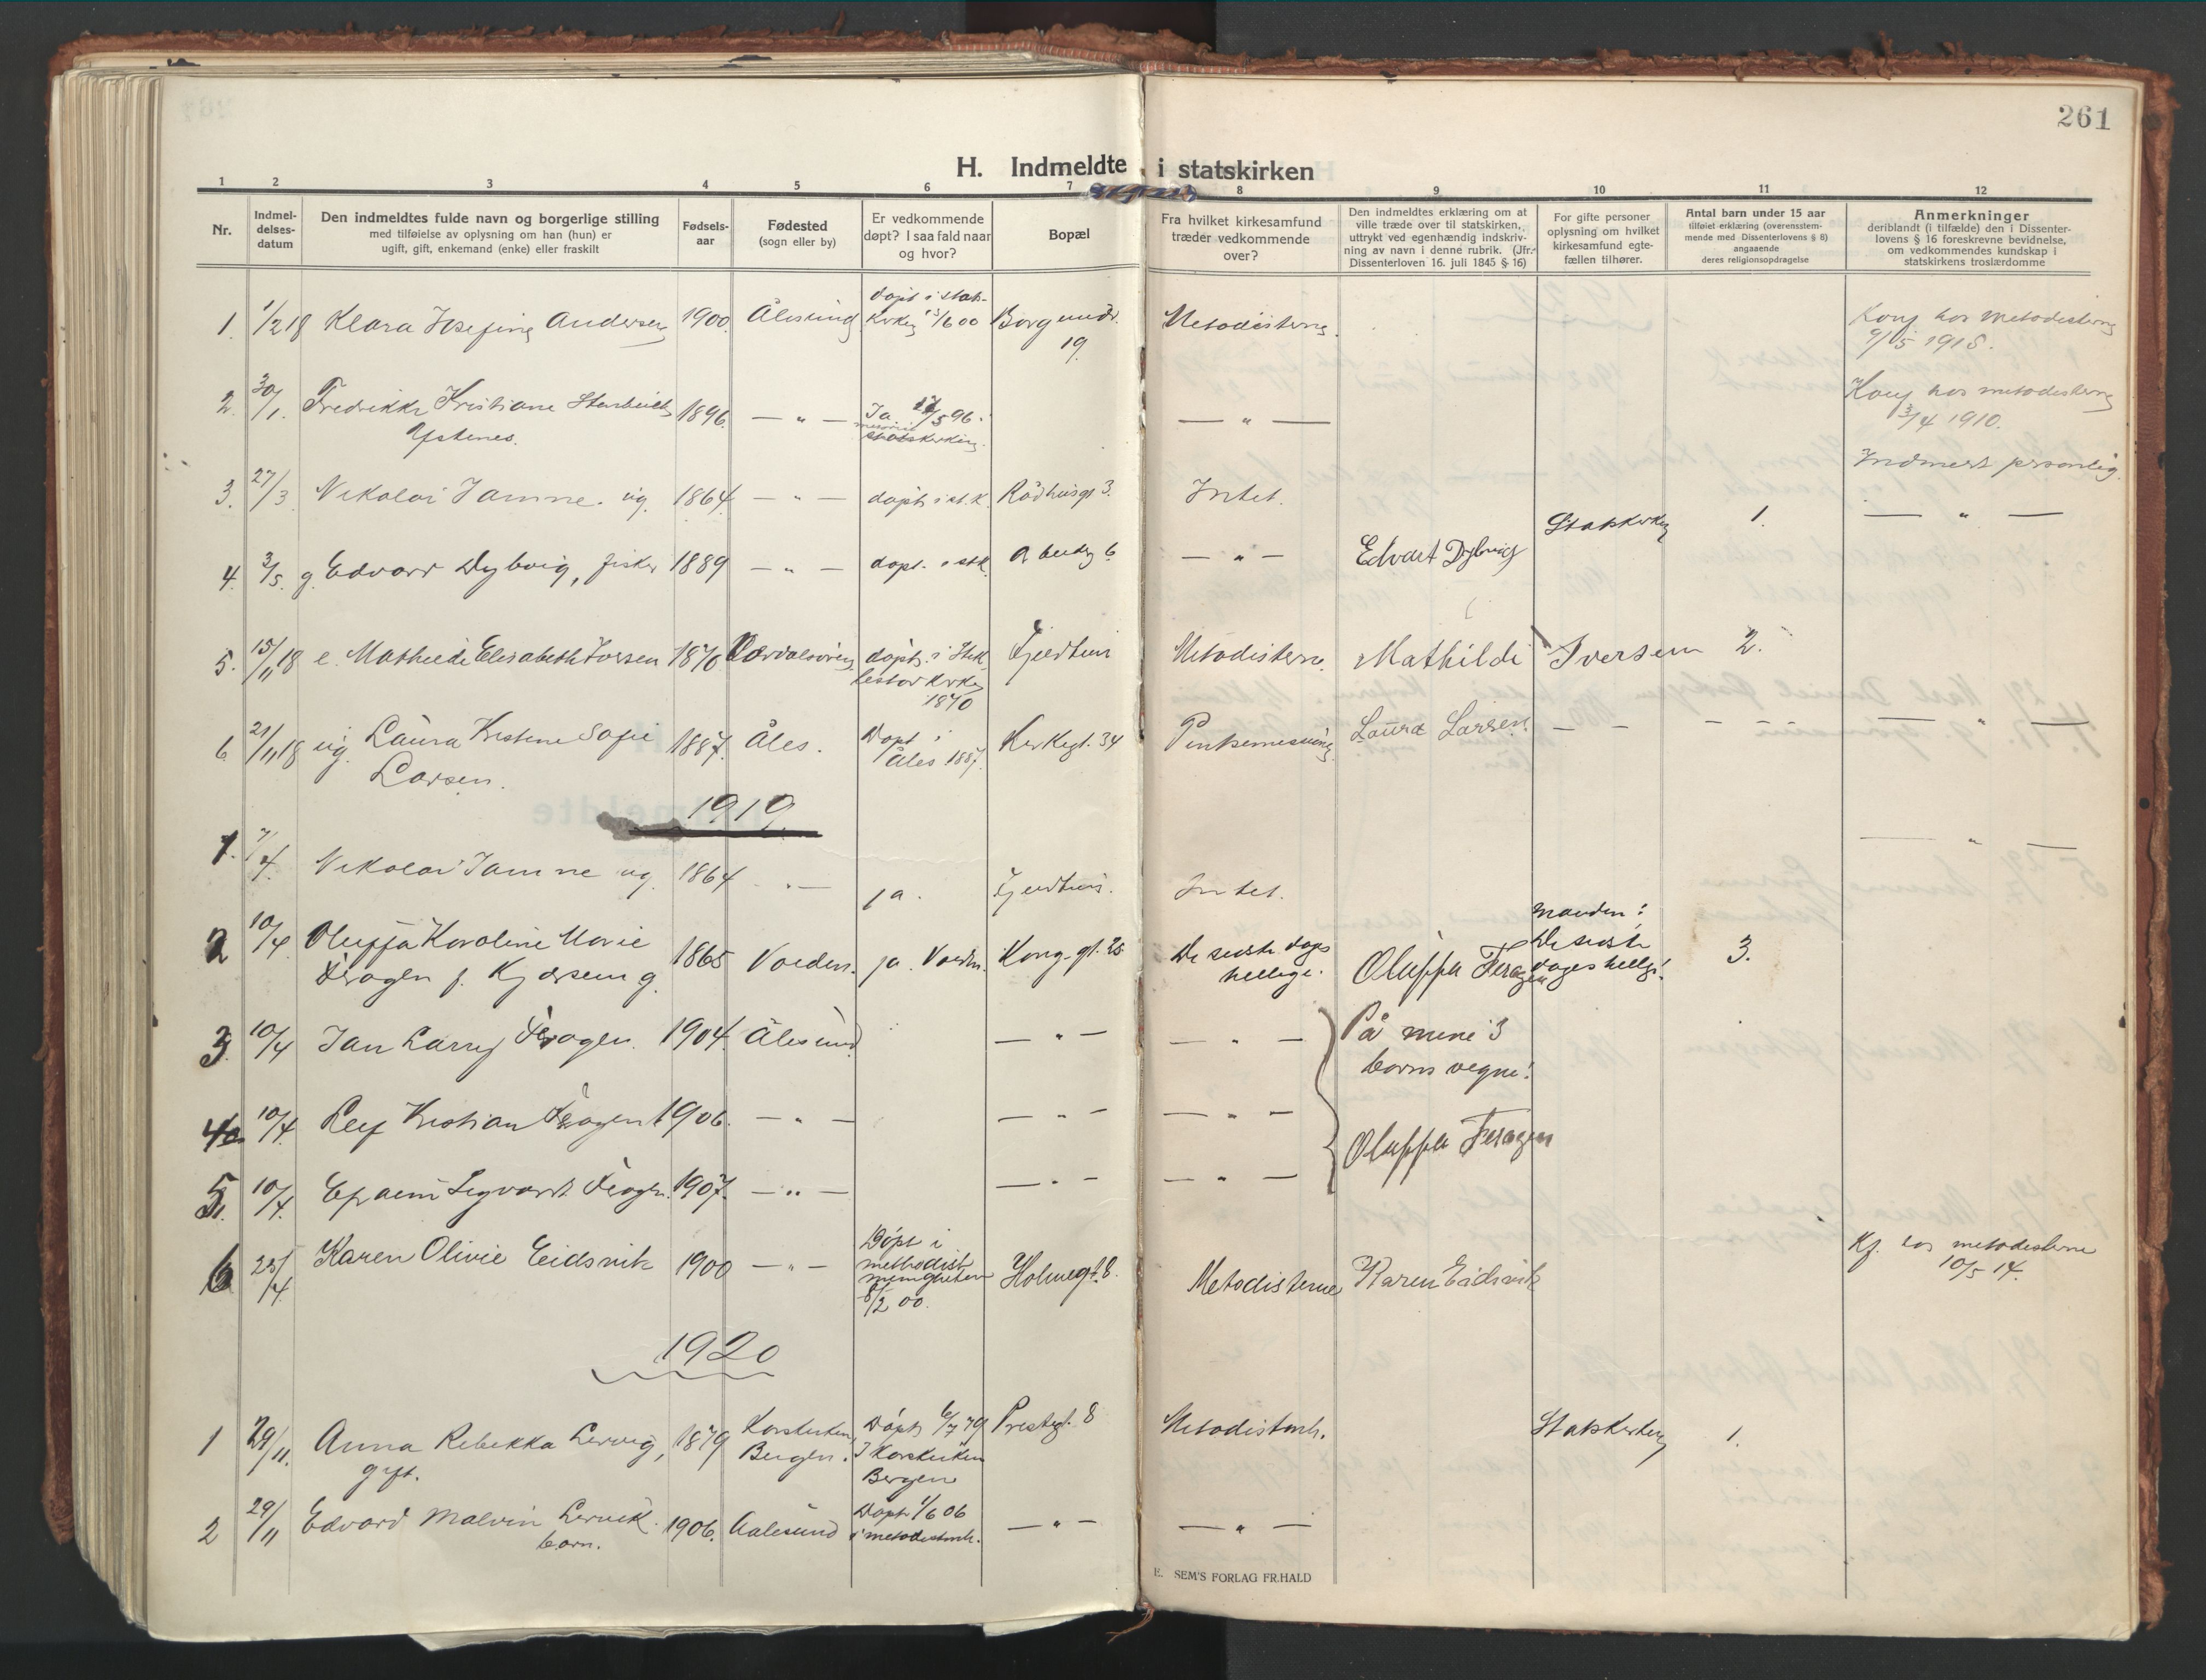 261
H. Indmeldte i statskirken
1 2 3 4 5 6 7 8 9 10 11 12
Nr.
Indmel-
delses-
datum
Den indmeldtes fulde navn og borgerlige stilling
med tilføielse av oplysning om han (hun) er
ugift, gift, enkemand (enke) eller fraskilt
Fødsels-
aar
Fødested
(sogn eller by)
Er vedkommende
døpt? I saa fald naar
og hvor?
Bopæl
Fra hvilket kirkesamfund
træder vedkommende
over?
Den indmeldtes erklæring om at
ville træde over til statskirken,
uttrykt ved egenhændig indskriv-
ning av navn i denne rubrik. (Jfr.
Dissenterloven 16. juli 1845 § 16)
For gifte personer
oplysning om hvilket
kirkesamfund egte-
fællen tilhører.
Antal barn under 15 aar
tilføiet erklæring (overensstem-
mende med Dissenterlovens § 8)
angaaende
deres religionsopdragelse
Anmerkninger
deriblandt (i tilfælde) den i Dissenter-
lovens § 16 foreskrevne bevidnelse,
om vedkommendes kundskap i
statskirkens troslærdomme
1. 1/2 18 Klara Josefine Andersen 1900. Ålesund
døpt i stats-
kirken 13/6 00
Borgundv.
19.
Metodisterne.
Konf hos Metodisterne
9/5 1915.
2. 30/1. Fredrikke Kristiane
Ystenes.
1896. — " —
Ja 17/5 96.
statskirken.
— " —
Konf hos metodisterne
3/4 1910.
3. 27/3 Nikolai Jamne. ug. 1864 — " — døpt i st.k. Rådhusgt 3. Intet.
Indmeldt personlig.
4. 3/5. g. Edvard Dybvig, fisker 1889 — " — døpt. i st.k. — " — Edvart Dybvig Statskirken 1. — " —
5. 15/11 18 e. Mathilde Elisabeth Iversen 1870
døpt i Stk.
kirken
1870
Metodisterne. Mathilde Iversen 2.
6 21/11 18 ug. Laura Kristine Sofie
Larsen.
1887. Åles.
Døpt i
Åles 1887.
Kirkegt. 34 Pinsemenig. Laura Larsen. — — — — — — " —
1919
1. 7/4. Nikolai Jamne ug. 1864 — " — ja. Intet. — " —
2 10/4 Oluffa Karoline Marie
Feragen f. g.
1865 ja. Kong.gt. 25
De sidste dages
hellige.
Oluffa Feragen
Manden:
De sidste
dages hellge!
3.
3. 10/4 Jan Harry Feragen. 1904. Ålesund. — " — — " —
På mine 3
børns vegne!
4. 10/4. Leif Kristian Feragen 1906. — " — — " — — " —
Oluffa Feragen
5. 10/4. Sigvart Feragen. 1907. — " — — " — — " —
6 25/4 Karen Olivie Eidsvik 1900 — " —
Döpt i
methodist
menigheten
8/2 00.
Holmegt. 8. Metodisterne Karen Eidsvik
Kf. hos metodisterne
10/5 14.
1920
1 29/11. Anna Rebekka Lervig,
gift.
1879
Korskirken
Bergen.
Døpt 6/7 79
I Korskirken
Bergen
Prestegt. 8 Metodistmh. Statskirken 1.
2 29/11 Edvard Malvin Lervik.
barn.
1906. Aalesund
Døpt 1/6 06
i metodistmh.
— " — — " —
E. SEM'S FORLAG FR.HALD